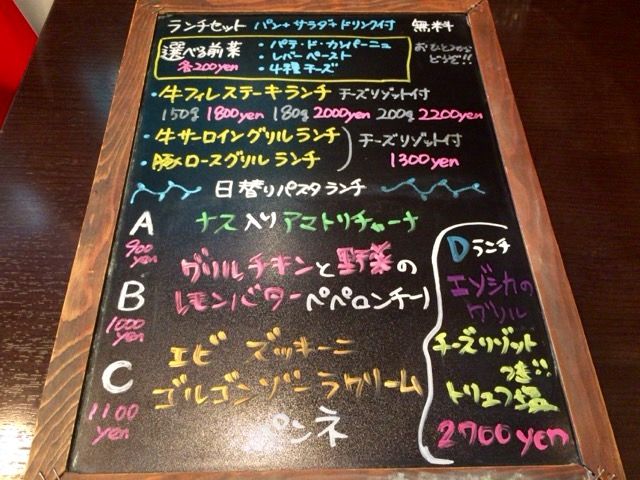 ランチセット パン+サラダ+ドリンク付 無料
選べる前菜 各200yen
・パテ・ド・カンパーニュ
・レバーペースト
・4種チーズ
おひとつから どうぞ!!
・牛フィレステーキランチ チーズリゾット付
150g 1800yen 180g 2000yen 200g 2200yen
・牛サーロイングリルランチ
・豚ロースグリルランチ
チーズリゾット付
1300yen
日替りパスタランチ
A 900yen
ナス入りアマトリチャーナ
B 1000yen
グリルチキンと野菜の
レモンバターペペロンチーノ
C 1100yen
エビ ズッキーニ
ゴルゴンゾーラクリーム
ペンネ
Dランチ
エゾシカの
グリル
チーズリゾット
つき!!
トリュフ塩
2700yen